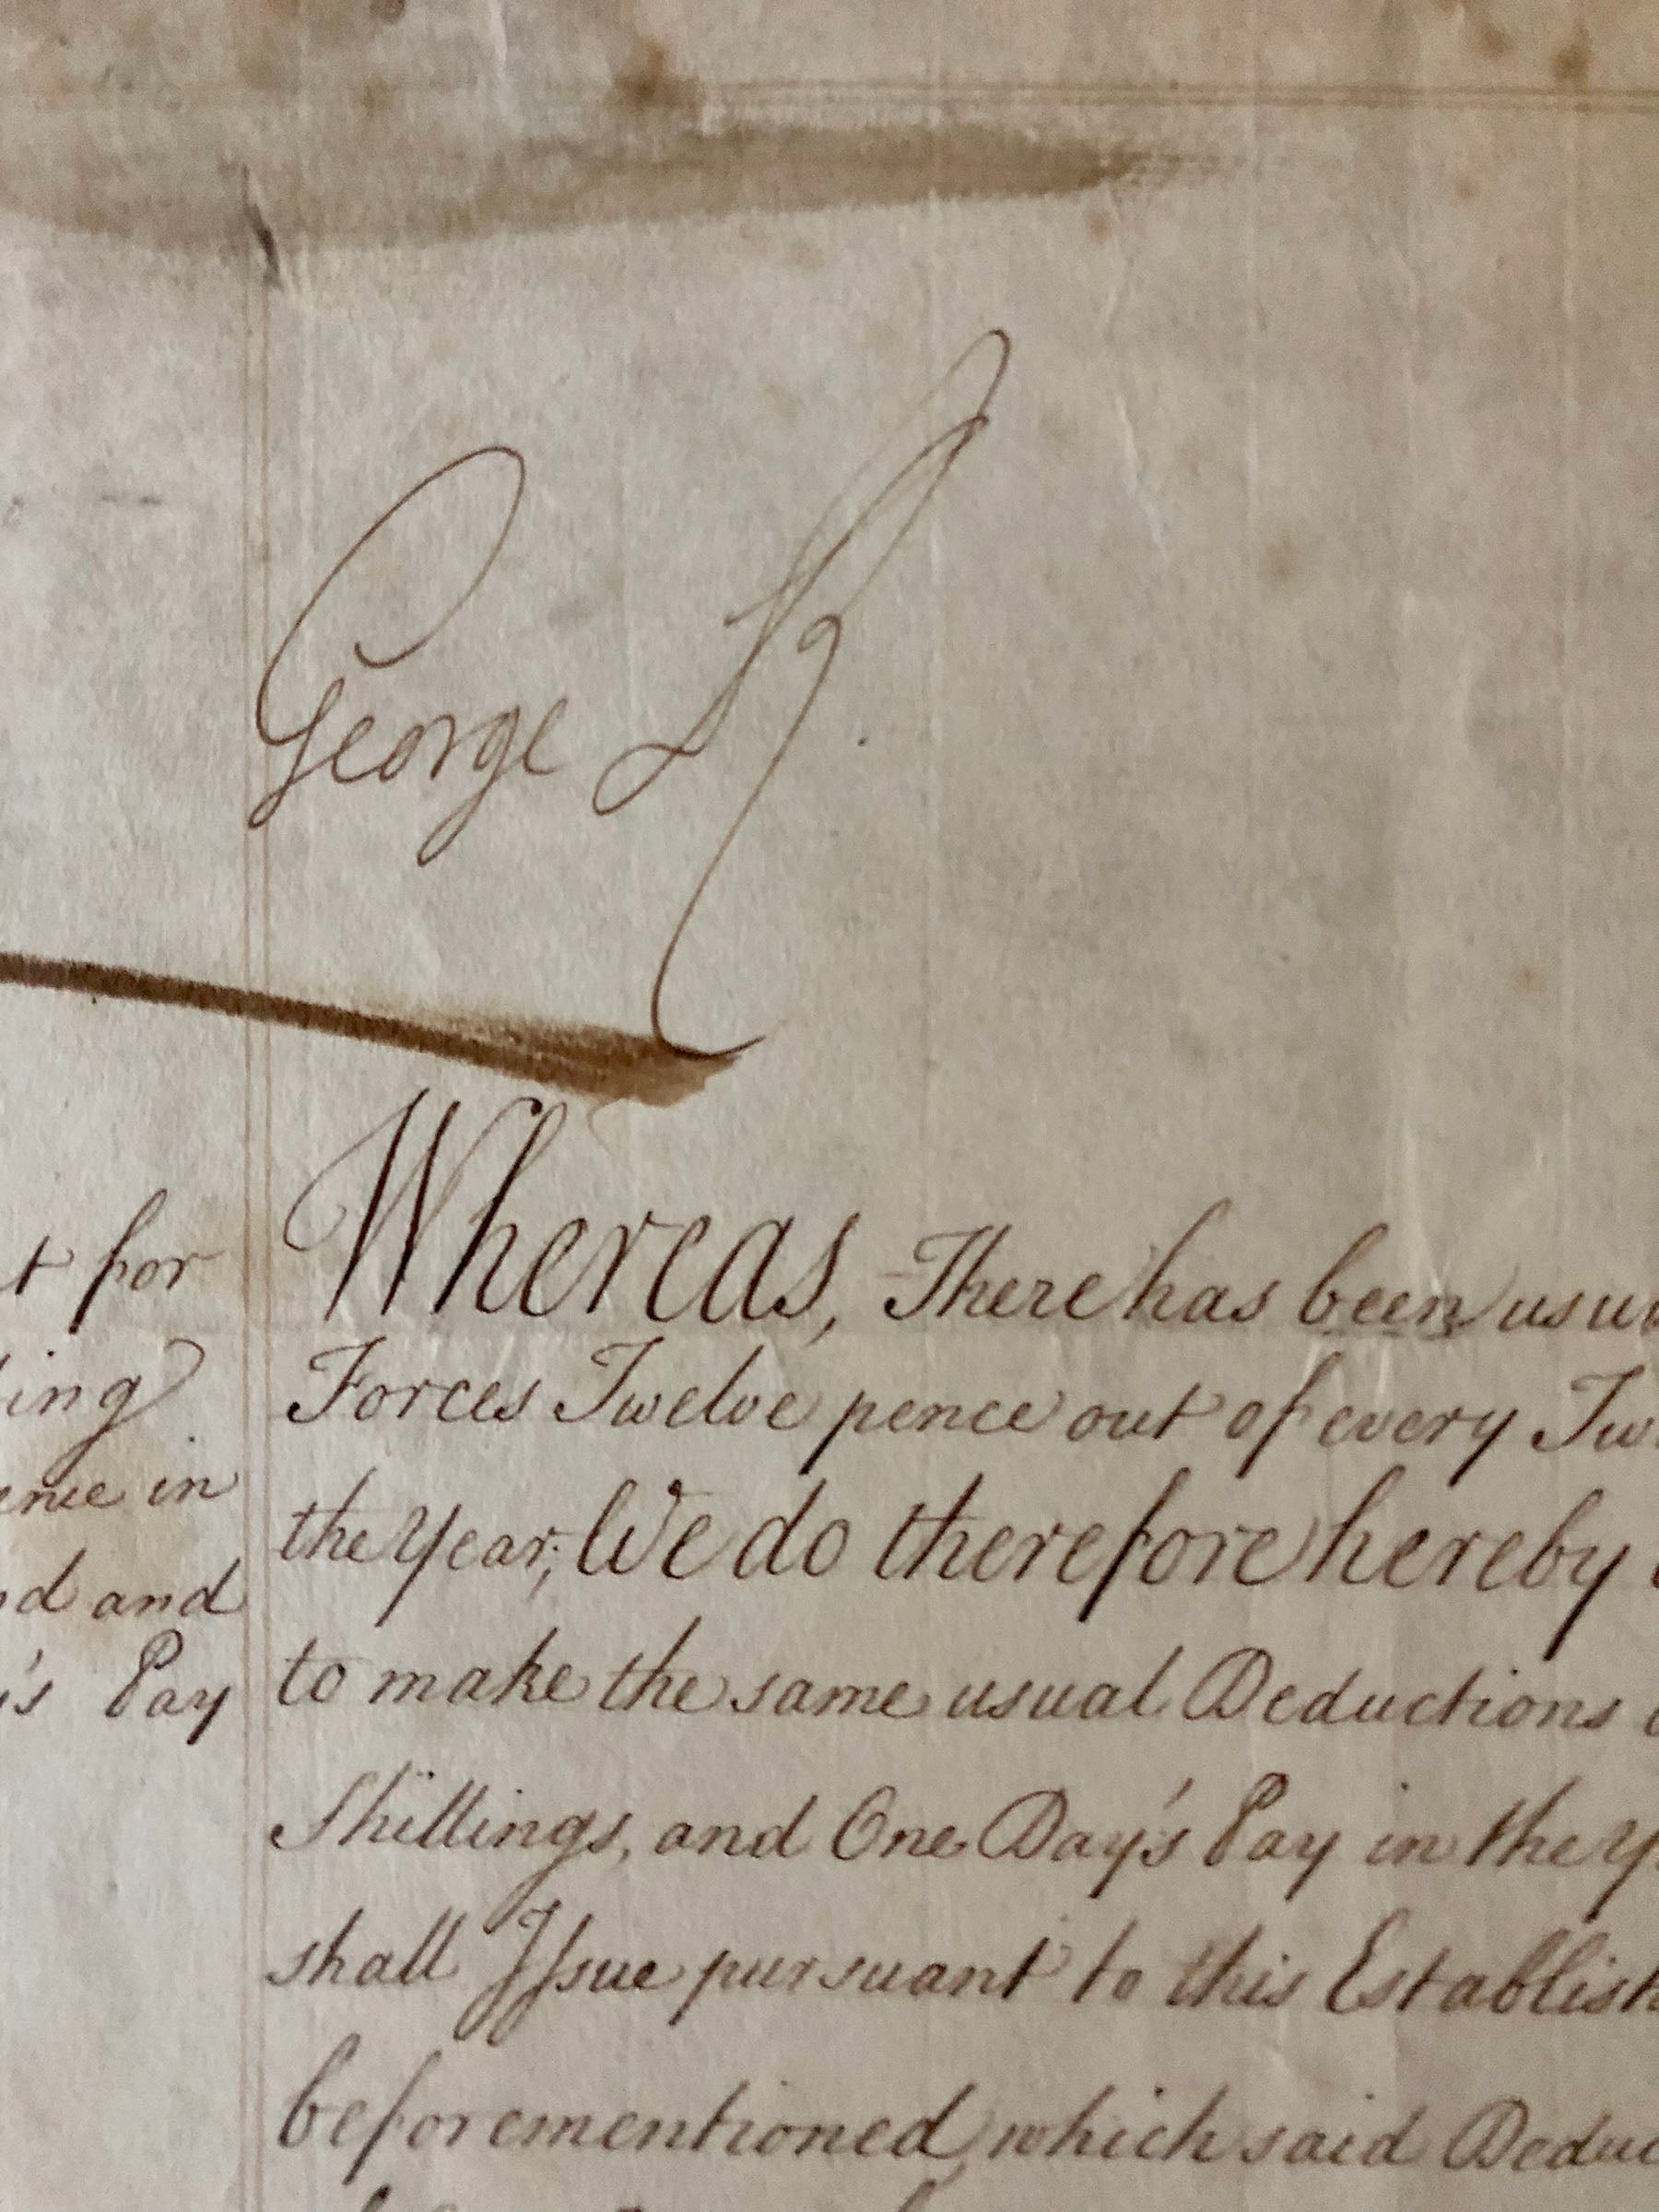 George R.
t for
ing
in
d and
's Pay
Whereas, There has been usu
Forces Twelve pence out of every Tw
the Year; We do therefore hereby
to make the same usual Deductions
Shillings, and One Day's Pay in the Y
shall Issue pursuant to this Establish
beforementioned, which said Deduc